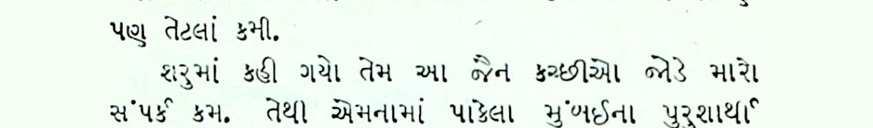 પણ તેટલાં કમી.
શરુમાં કહી ગયો તેમ આ જૈન કચ્છીઓ જોડે મારો
સંપર્ક કમ. તેથી એમનામાં પાકેલા મુંબઈના પુરુશાર્થી